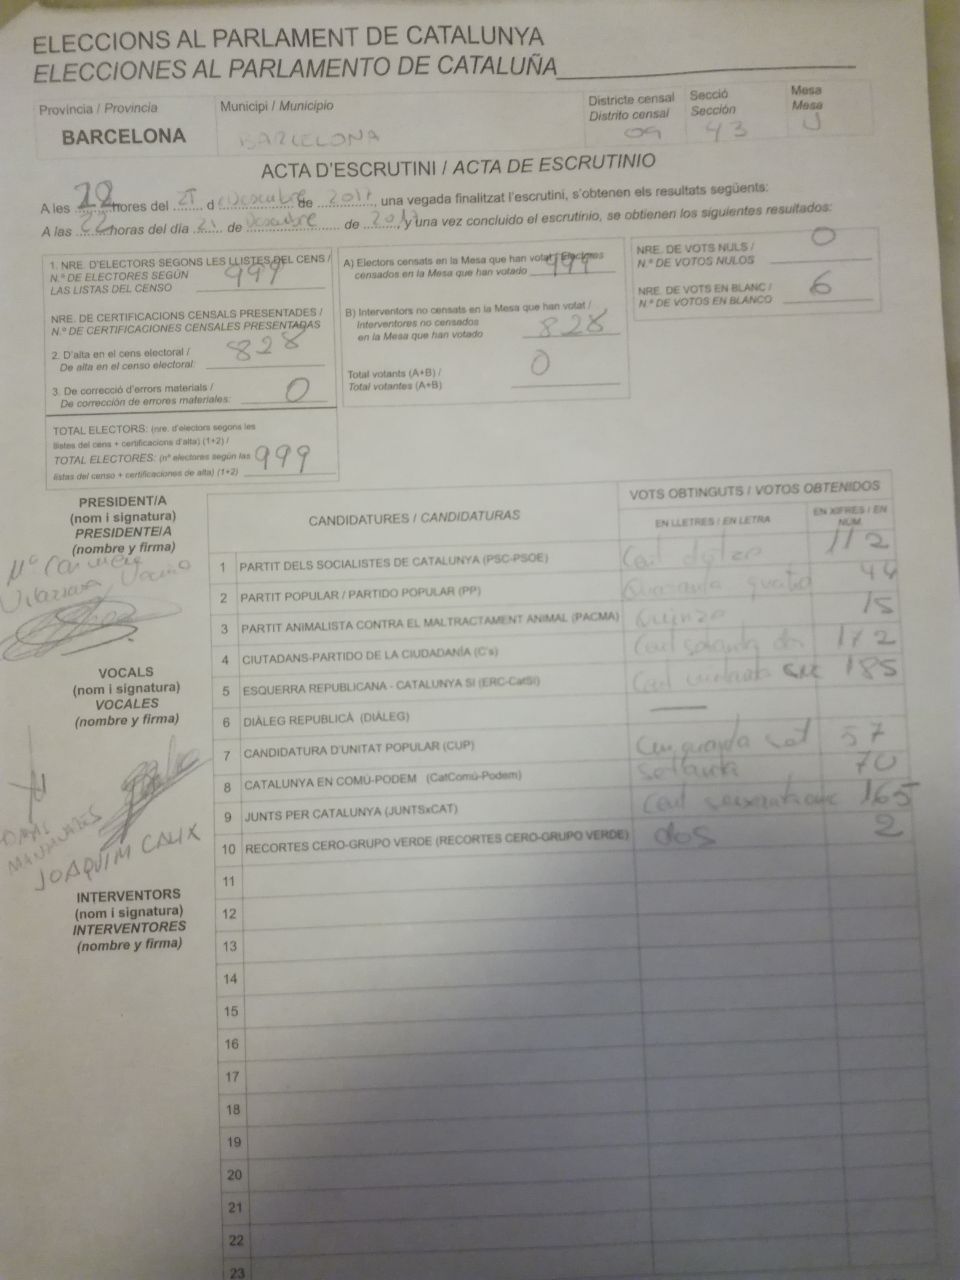 ELECCIONS AL PARLAMENT DE CATALUNYA
ELECCIONES AL PARLAMENTO DE CATALUÑA
Província / Provincia
BARCELONA
Municipi / Municipio
BARCELONA
Districte censal
Distrito censal
09
Secció
Sección
43
Mesa
Mesa
U
ACTA D'ESCRUTINI / ACTA DE ESCRUTINIO
A les 22 hores del 21 d de 2017, una vegada finalitzat l'escrutini, s'obtenen els resultats següents:
A las 22 horas del día 21 de de 2017, y una vez concluido el escrutinio, se obtienen los siguientes resultados:
1. NRE. D'ELECTORS SEGONS LES LLISTES DEL CENS /
N.º DE ELECTORES SEGÚN
LAS LISTAS DEL CENSO 999
NRE. DE CERTIFICACIONS CENSALS PRESENTADES /
N.º DE CERTIFICACIONES CENSALES PRESENTADAS
2. D'alta en el cens electoral /
De alta en el censo electoral: 828
3. De correcció d'errors materials /
De corrección de errores materiales: 0
TOTAL ELECTORS: (nre. d'electors segons les
llistes del cens + certificacions d'alta) (1+2) /
TOTAL ELECTORES: (nº electores según las
listas del censo + certificaciones de alta) (1+2) 999
A) Electors censats en la Mesa que han votat / Electores
censados en la Mesa que han votado 999
B) Interventors no censats en la Mesa que han votat /
Interventores no censados
en la Mesa que han votado 828
Total votants (A+B) /
Total votantes (A+B) 0
NRE. DE VOTS NULS /
N.º DE VOTOS NULOS 0
NRE. DE VOTS EN BLANC /
N.º DE VOTOS EN BLANCO 6
PRESIDENT/A
(nom i signatura)
PRESIDENTE/A
(nombre y firma)
Mª Carmen
VOCALS
(nom i signatura)
VOCALES
(nombre y firma)
JOAQUIM CALIX
INTERVENTORS
(nom i signatura)
INTERVENTORES
(nombre y firma)
CANDIDATURES / CANDIDATURAS
VOTS OBTINGUTS / VOTOS OBTENIDOS
EN LLETRES / EN LETRA
EN XIFRES / EN NÚM.
1 PARTIT DELS SOCIALISTES DE CATALUNYA (PSC-PSOE) Cent dotze 112
2 PARTIT POPULAR / PARTIDO POPULAR (PP) Quaranta quatre 44
3 PARTIT ANIMALISTA CONTRA EL MALTRACTAMENT ANIMAL (PACMA) Quinze 15
4 CIUTADANS-PARTIDO DE LA CIUDADANÍA (C's) Cent setanta dos 172
5 ESQUERRA REPUBLICANA - CATALUNYA SÍ (ERC-CatSí) Cent 185
6 DIÀLEG REPUBLICÀ (DIÀLEG) —
7 CANDIDATURA D'UNITAT POPULAR (CUP) Cinquanta set 57
8 CATALUNYA EN COMÚ-PODEM (CatComú-Podem) Setanta 70
9 JUNTS PER CATALUNYA (JUNTSxCAT) Cent 165
10 RECORTES CERO-GRUPO VERDE (RECORTES CERO-GRUPO VERDE) dos 2
11
12
13
14
15
16
17
18
19
20
21
22
23